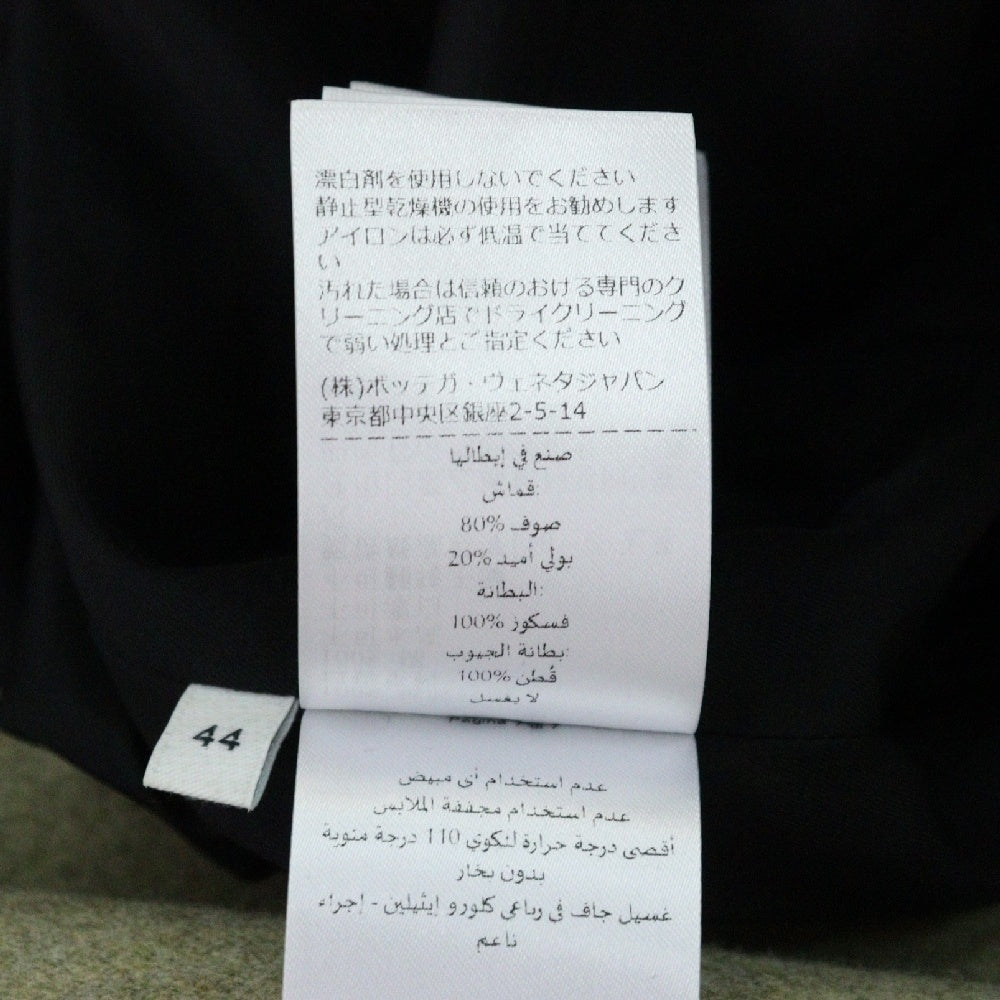 漂白剤を使用しないでください
静止型乾燥機の使用をお勧めします
アイロンは必ず低温で当ててくださ
い
汚れた場合は信頼のおける専門のク
リーニング店でドライクリーニング
で弱い処理とご指定ください
(株)ボッテガ・ヴェネタジャパン
東京都中央区銀座2-5-14
صنع في إيطاليا
قماش:
صوف 80%
بولي أميد 20%
البطانة:
فسكوز 100%
بطانة الجيوب:
قُطن 100%
لا يغسل
44
عدم استخدام أي مبيض
عدم استخدام مجففة الملابس
أقصى درجة حرارة للكوي 110 درجة مئوية
بدون بخار
غسيل جاف في رباعي كلورو إيثيلين - إجراء
ناعم